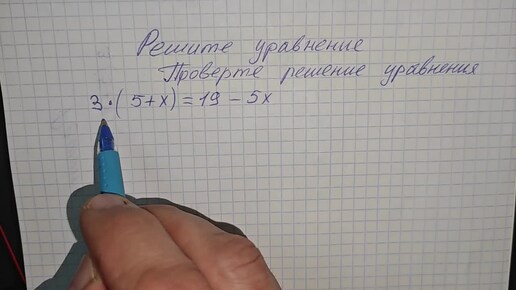 Решите уравнение
Проверте решение уравнения
3·(5+x)=19-5x